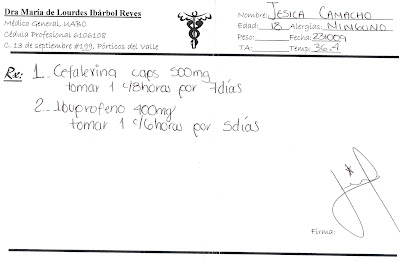 Dra María de Lourdes Ibárbol Reyes
Médico General UABC
Cédula Profesional 6106108
C. 13 de septiembre #199, Pórticos del Valle
Nombre: JESICA CAMACHO
Edad: 18 Alergias: NINGUNO
Peso: Fecha: 231009
TA: Temp: 36.4
Rx: 1. Cefalexina caps 500mg
tomar 1 c/8horas por 7días
2. Ibuprofeno 400mg
tomar 1 c/6horas por 5días
Firma: